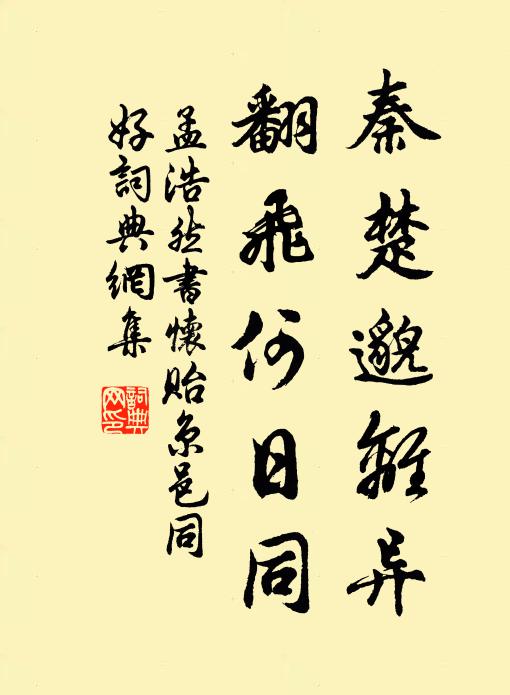 秦楚邈離异
翻飛何日同
孟浩然書懷貽京邑同
好詞典網集
詞典
网印